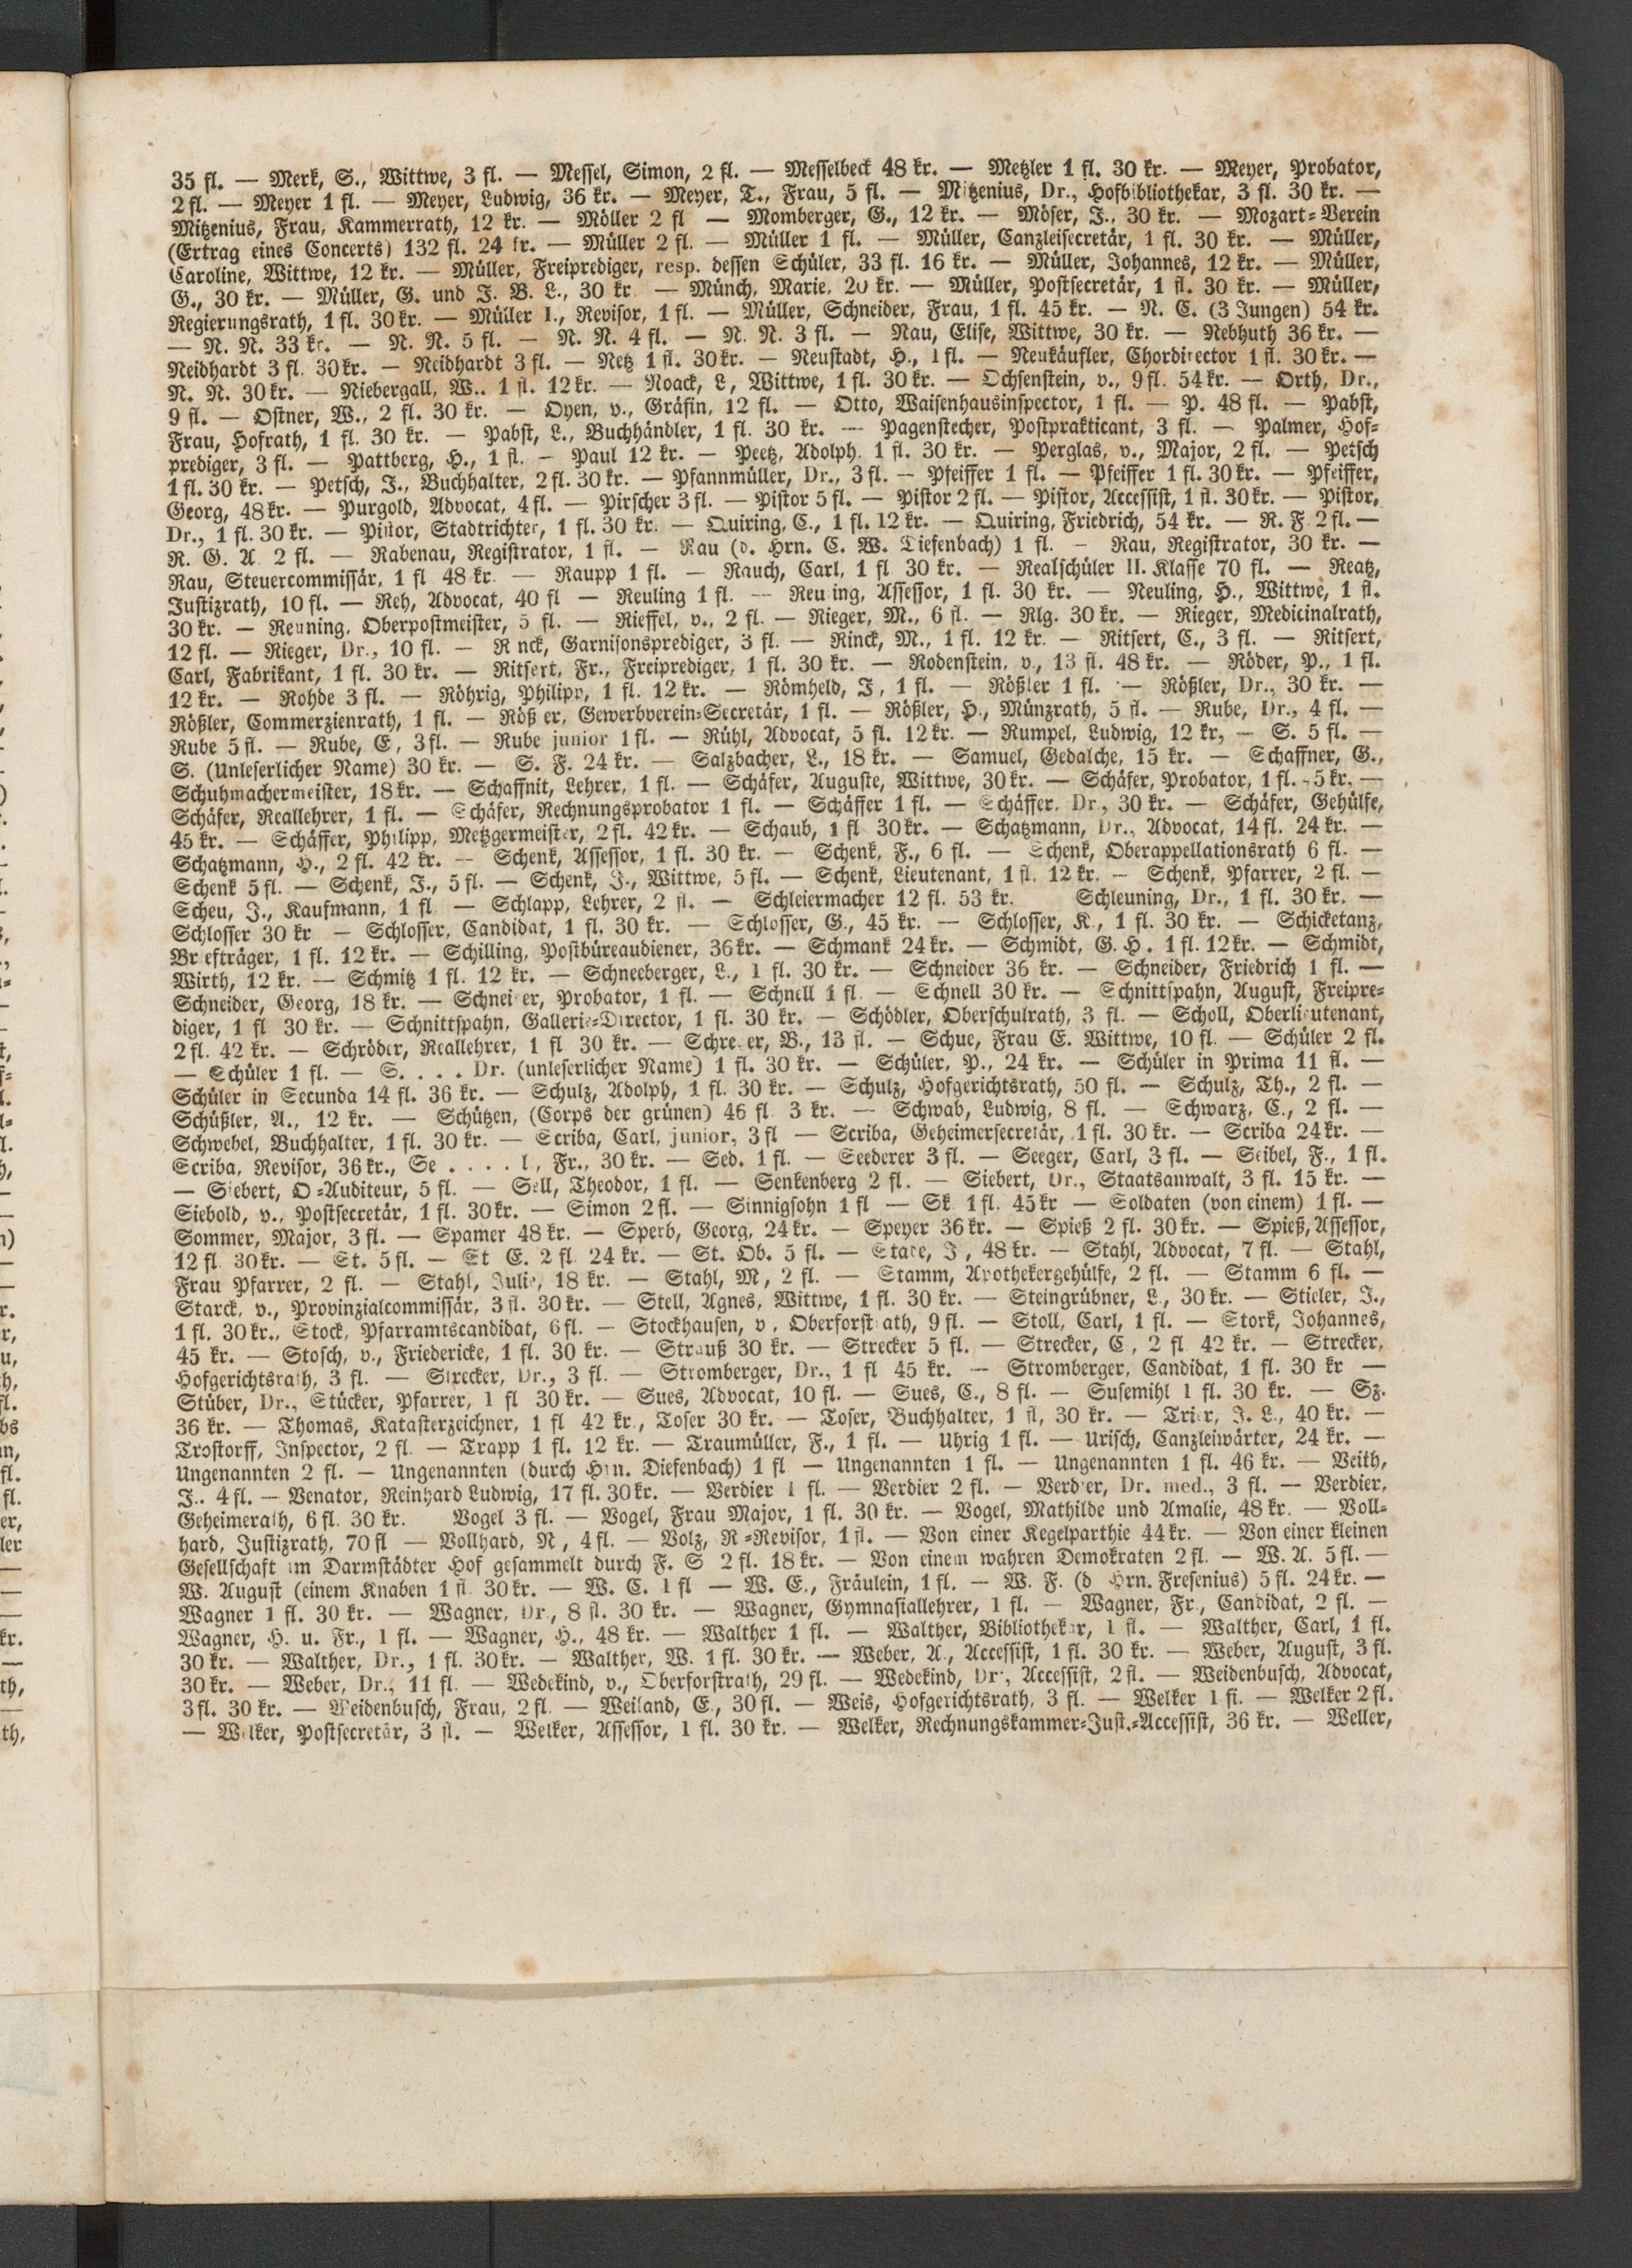 35 fl. — Merk, S., Wittwe, 3 fl. — Messel, Simon, 2 fl. — Messelbeck 48 kr. — Metzler 1 fl. 30 kr. — Meyer, Probator,
2 fl. — Meyer 1 fl. — Meyer, Ludwig, 36 kr. — Meyer, T., Frau, 5 fl. — Mitzenius, Dr., Hofbibliothekar, 3 fl. 30 kr. —
Mitzenius, Frau, Kammerrath, 12 kr. — Möller 2 fl — Momberger, G., 12 kr. — Möser, J., 30 kr. — Mozart-Verein
(Ertrag eines Concerts) 132 fl. 24 kr. — Müller 2 fl. — Müller 1 fl. — Müller, Canzleisecretär, 1 fl. 30 kr. — Müller,
Caroline, Wittwe, 12 kr. — Müller, Freiprediger, resp. dessen Schüler, 33 fl. 16 kr. — Müller, Johannes, 12 kr. — Müller,
G., 30 kr. — Müller, G. und J. B. L., 30 kr — Münch, Marie, 20 kr. — Müller, Postsecretär, 1 fl. 30 kr. — Müller,
Regierungsrath, 1 fl. 30 kr. — Müller I., Revisor, 1 fl. — Müller, Schneider, Frau, 1 fl. 45 kr. — N. C. (3 Jungen) 54 kr.
— N. N. 33 kr. — N. N. 5 fl. — N. N. 4 fl. — N. N. 3 fl. — Nau, Elise, Wittwe, 30 kr. — Nebhuth 36 kr. —
Neidhardt 3 fl. 30 kr. — Neidhardt 3 fl. — Netz 1 fl. 30 kr. — Neustadt, H., 1 fl. — Neukäufler, Chordirector 1 fl. 30 kr. —
N. N. 30 kr. — Niebergall, W.. 1 fl. 12 kr. — Noack, L, Wittwe, 1 fl. 30 kr. — Ochsenstein, v., 9 fl. 54 kr. — Orth, Dr.,
9 fl. — Ostner, W., 2 fl. 30 kr. — Oyen, v., Gräfin, 12 fl. — Otto, Waisenhausinspector, 1 fl. — P. 48 fl. — Pabst,
Frau, Hofrath, 1 fl. 30 kr. — Pabst, L., Buchhändler, 1 fl. 30 kr. — Pagenstecher, Postprakticant, 3 fl. — Palmer, Hof-
prediger, 3 fl. — Pattberg, H., 1 fl. — Paul 12 kr. — Peetz, Adolph, 1 fl. 30 kr. — Perglas, v., Major, 2 fl. — Petsch
1 fl. 30 kr. — Petsch, J., Buchhalter, 2 fl. 30 kr. — Pfannmüller, Dr., 3 fl. — Pfeiffer 1 fl. — Pfeiffer 1 fl. 30 kr. — Pfeiffer,
Georg, 48 kr. — Purgold, Advocat, 4 fl. — Pirscher 3 fl. — Pistor 5 fl. — Pistor 2 fl. — Pistor, Accessist, 1 fl. 30 kr. — Pistor,
Dr., 1 fl. 30 kr. — Pistor, Stadtrichter, 1 fl. 30 kr. — Quiring, C., 1 fl. 12 kr. — Quiring, Friedrich, 54 kr. — R. F 2 fl. —
R. G. A 2 fl. — Rabenau, Registrator, 1 fl. — Rau (d. Hrn. C. W. Diefenbach) 1 fl. — Rau, Registrator, 30 kr. —
Rau, Steuercommissär, 1 fl 48 kr. — Raupp 1 fl. — Rauch, Carl, 1 fl 30 kr. — Realschüler II. Klasse 70 fl. — Reatz,
Justizrath, 10 fl. — Reh, Advocat, 40 fl — Reuling 1 fl. — Reu ing, Assessor, 1 fl. 30 kr. — Neuling, H., Wittwe, 1 fl.
30 kr. — Reuning, Oberpostmeister, 5 fl. — Rieffel, v., 2 fl. — Rieger, M., 6 fl. — Rlg. 30 kr. — Rieger, Medicinalrath,
12 fl. — Rieger, Dr., 10 fl. — R nck, Garnisonsprediger, 3 fl. — Rinck, M., 1 fl. 12 kr. — Ritsert, C., 3 fl. — Ritsert,
Carl, Fabrikant, 1 fl. 30 kr. — Ritsert, Fr., Freiprediger, 1 fl. 30 kr. — Rodenstein, v., 13 fl. 48 kr. — Röder, P., 1 fl.
12 kr. — Rohde 3 fl. — Röhrig, Philipp, 1 fl. 12 kr. — Römheld, J, 1 fl. — Rößler 1 fl. — Rößler, Dr., 30 kr. —
Rößler, Commerzienrath, 1 fl. — Röß er, Gewerbverein-Secretär, 1 fl. — Rößler, H., Münzrath, 5 fl. — Rube, Dr., 4 fl. —
Rube 5 fl. — Rube, E, 3 fl. — Rube junior 1 fl. — Rühl, Advocat, 5 fl. 12 kr. — Rumpel, Ludwig, 12 kr, — S. 5 fl. —
S. (Unleserlicher Name) 30 kr. — S. F. 24 kr. — Salzbacher, L., 18 kr. — Samuel, Gedalche, 15 kr. — Schaffner, G.,
Schuhmachermeister, 18 kr. — Schaffnit, Lehrer, 1 fl. — Schäfer, Auguste, Wittwe, 30 kr. — Schäfer, Probator, 1 fl. 5 kr. —
Schäfer, Reallehrer, 1 fl. — Schäfer, Rechnungsprobator 1 fl. — Schäffer 1 fl. — Schäffer, Dr, 30 kr. — Schäfer, Gehülfe,
45 kr. — Schäffer, Philipp, Metzgermeister, 2 fl. 42 kr. — Schaub, 1 fl 30 kr. — Schatzmann, Dr., Advocat, 14 fl. 24 kr. —
Schatzmann, H., 2 fl. 42 kr. — Schenk, Assessor, 1 fl. 30 kr. — Schenk, F., 6 fl. — Schenk, Oberappellationsrath 6 fl. —
Schenk 5 fl. — Schenk, J., 5 fl. — Schenk, J., Wittwe, 5 fl. — Schenk, Lieutenant, 1 fl. 12 kr. — Schenk, Pfarrer, 2 fl. —
Scheu, J., Kaufmann, 1 fl — Schlapp, Lehrer, 2 fl. — Schleiermacher 12 fl. 53 kr. Schleuning, Dr., 1 fl. 30 kr. —
Schlosser 30 kr — Schlosser, Candidat, 1 fl. 30 kr. — Schlosser, G., 45 kr. — Schlosser, K., 1 fl. 30 kr. — Schicketanz,
Br efträger, 1 fl. 12 kr. — Schilling, Postbüreaudiener, 36 kr. — Schmank 24 kr. — Schmidt, G. H. 1 fl. 12 kr. — Schmidt,
Wirth, 12 kr. — Schmitz 1 fl. 12 kr. — Schneeberger, L., 1 fl. 30 kr. — Schneider 36 kr. — Schneider, Friedrich 1 fl. —
Schneider, Georg, 18 kr. — Schnei er, Probator, 1 fl. — Schnell 1 fl — Schnell 30 kr. — Schnittspahn, August, Freipre-
diger, 1 fl 30 kr. — Schnittspahn, Gallerie-Director, 1 fl. 30 kr. — Schödler, Oberschulrath, 3 fl. — Scholl, Oberlieutenant,
2 fl. 42 kr. — Schröder, Reallehrer, 1 fl 30 kr. — Schre er, B., 13 fl. — Schue, Frau E. Wittwe, 10 fl. — Schüler 2 fl.
— Schüler 1 fl. — S. . . . Dr. (unleserlicher Name) 1 fl. 30 kr. — Schüler, P., 24 kr. — Schüler in Prima 11 fl. —
Schüler in Secunda 14 fl. 36 kr. — Schulz, Adolph, 1 fl. 30 kr. — Schulz, Hofgerichtsrath, 50 fl. — Schulz, Th., 2 fl. —
Schüßler, A., 12 kr. — Schützen, (Corps der grünen) 46 fl 3 kr. — Schwab, Ludwig, 8 fl. — Schwarz, C., 2 fl. —
Schwebel, Buchhalter, 1 fl. 30 kr. — Scriba, Carl, junior, 3 fl — Scriba, Geheimersecretär, 1 fl. 30 kr. — Scriba 24 kr. —
Scriba, Revisor, 36 kr., Se . . . . l, Fr., 30 kr. — Sed. 1 fl. — Seederer 3 fl. — Seeger, Carl, 3 fl. — Seibel, F., 1 fl.
— Siebert, O-Auditeur, 5 fl. — Sell, Theodor, 1 fl. — Senkenberg 2 fl. — Siebert, Dr., Staatsanwalt, 3 fl. 15 kr. —
Siebold, v., Postsecretär, 1 fl. 30 kr. — Simon 2 fl. — Sinnigsohn 1 fl — Sk. 1 fl. 45 kr — Soldaten (von einem) 1 fl. —
Sommer, Major, 3 fl. — Spamer 48 kr. — Sperb, Georg, 24 kr. — Speyer 36 kr. — Spieß 2 fl. 30 kr. — Spieß, Assessor,
12 fl. 30 kr. — St. 5 fl. — St E. 2 fl. 24 kr. — St. Ob. 5 fl. — J, 48 kr. — Stahl, Advocat, 7 fl. — Stahl,
Frau Pfarrer, 2 fl. — Stahl, Julie, 18 kr. — Stahl, M, 2 fl. — Stamm, Apothekergehülfe, 2 fl. — Stamm 6 fl. —
Starck, v., Provinzialcommissär, 3 fl. 30 kr. — Stell, Agnes, Wittwe, 1 fl. 30 kr. — Steingrübner, L., 30 kr. — Stieler, J.,
1 fl. 30 kr., Stock, Pfarramtscandidat, 6 fl. — Stockhausen, v, Oberforst ath, 9 fl. — Stoll, Carl, 1 fl. — Stork, Johannes,
45 kr. — Stosch, v., Friedericke, 1 fl. 30 kr. — Strauß 30 kr. — Strecker 5 fl. — Strecker, C, 2 fl 42 kr. — Strecker,
Hofgerichtsrath, 3 fl. — Strecker, Dr., 3 fl. — Stromberger, Dr., 1 fl 45 kr. — Stromberger, Candidat, 1 fl. 30 kr —
Stüber, Dr., Stücker, Pfarrer, 1 fl 30 kr. — Sues, Advocat, 10 fl. — Sues, C., 8 fl. — Susemihl 1 fl. 30 kr. — Sz.
36 kr. — Thomas, Katasterzeichner, 1 fl 42 kr., Toser 30 kr. — Toser, Buchhalter, 1 fl, 30 kr. — Trier, J. L., 40 kr. —
Trostorff, Inspector, 2 fl — Trapp 1 fl. 12 kr. — Traumüller, F., 1 fl. — Uhrig 1 fl. — Urisch, Canzleiwärter, 24 kr. —
Ungenannten 2 fl. — Ungenannten (durch Hrn. Diefenbach) 1 fl — Ungenannten 1 fl. — Ungenannten 1 fl. 46 kr. — Veith,
J.. 4 fl. — Venator, Reinhard Ludwig, 17 fl. 30 kr. — Verdier 1 fl. — Verdier 2 fl. — Verd er, Dr. med., 3 fl. — Verdier,
Geheimerath, 6 fl. 30 kr. Vogel 3 fl. — Vogel, Frau Major, 1 fl. 30 kr. — Vogel, Mathilde und Amalie, 48 kr. — Voll-
hard, Justizrath, 70 fl — Vollhard, N, 4 fl. — Volz, R-Revisor, 1 fl. — Von einer Kegelparthie 44 kr. — Von einer kleinen
Gesellschaft im Darmstädter Hof gesammelt durch F. S 2 fl. 18 kr. — Von einem wahren Demokraten 2 fl. — W. A. 5 fl. —
W. August (einem Knaben 1 fl 30 kr. — W. C. 1 fl — W. E., Fräulein, 1 fl. — W. F. (d Hrn. Fresenius) 5 fl. 24 kr. —
Wagner 1 fl. 30 kr. — Wagner, Dr, 8 fl. 30 kr. — Wagner, Gymnasiallehrer, 1 fl. — Wagner, Fr, Candidat, 2 fl. —
Wagner, H. u. Fr., 1 fl. — Wagner, H., 48 kr. — Walther 1 fl. — Walther, Bibliothekar, 1 fl. — Walther, Carl, 1 fl.
30 kr. — Walther, Dr., 1 fl. 30 kr. — Walther, W. 1 fl. 30 kr. — Weber, A, Accessist, 1 fl. 30 kr. — Weber, August, 3 fl.
30 kr. — Weber, Dr., 11 fl. — Wedekind, v., Oberforstrath, 29 fl. — Wedekind, Dr., Accessist, 2 fl. — Weidenbusch, Advocat,
3 fl. 30 kr. — Weidenbusch, Frau, 2 fl. — Weiland, E, 30 fl. — Weis, Hofgerichtsrath, 3 fl. — Welker 1 fl. — Welker 2 fl.
— Welker, Postsecretär, 3 fl. — Welker, Assessor, 1 fl. 30 kr. — Welker, Rechnungskammer-Just.-Accessist, 36 kr. — Weller,